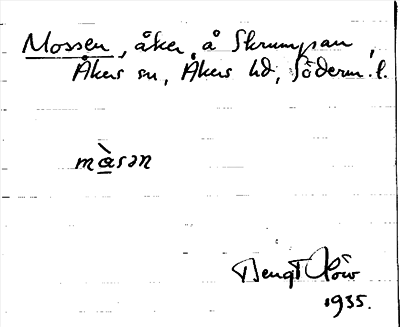 Mossen, åker, å Skrumpan,
Åkers sn, Åkers hd, Söderm. l.
màsən
Bengt
1935.